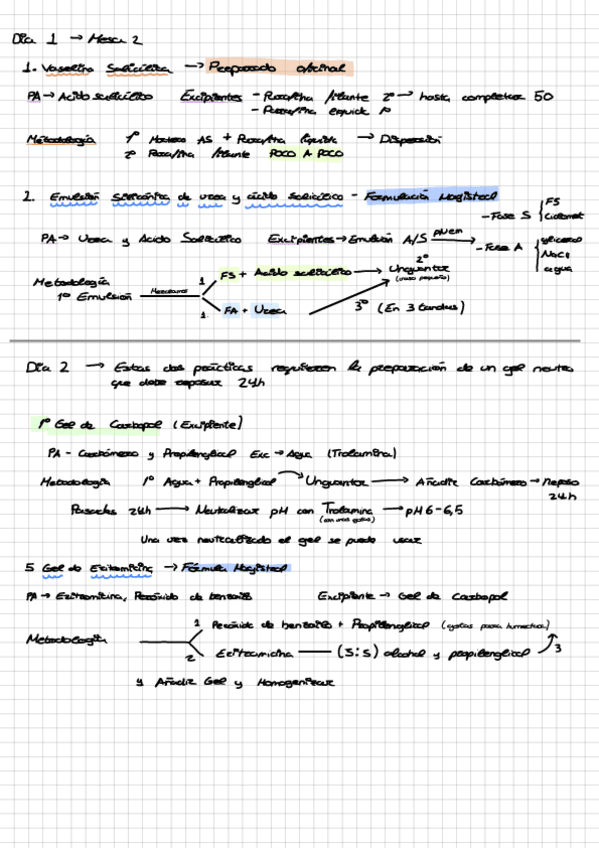 Día 1 → Mesa 2
1. Vaselina Salicílica → Preparado oficinal
PA → Acido salicílico Excipientes - Parafina filante 2º → hasta completar 50
- Parafina líquida 1º
Metodología 1º Mortero AS + Parafina líquida → Dispersión
2º Parafina filante POCO A POCO
2. Emulsión Silicónica de urea y ácido salicílico - Formulación Magistral
PA → Urea y Acido Salicílico Excipientes → Emulsión A/S
- Fase S FS Ciclomet
- Fase A glicerol NaCl agua
Metodología
1º Emulsión
1 FS + Acido salicílico → 2º Unguentor
1. FA + Urea 3º (En 3 tandas)
Día 2 → Estas dos prácticas requieren la preparación de un gel neutro
que debe reposar 24h
1º Gel de Carbopol (Excipiente)
PA - Carbómero y Propilenglicol Exc → Agua (Trolamina)
Metodología 1º Agua + Propilenglicol → Unguentor → Añadir Carbómero → reposo
24h
Pasadas 24h → Neutralizar pH con Trolamina → pH 6-6,5
(con unas gotas)
Una vez neutralizado el gel se puede usar
5 Gel de Eritromicina → Fórmula Magistral
PA → Eritromicina, Peróxido de benzoilo Excipiente → Gel de Carbopol
Metodología
1 Peróxido de benzoilo + Propilenglicol (gotas para humectar)
2 Eritromicina — (S:S) alcohol y propilenglicol 3
4 Añadir Gel y Homogeneizar